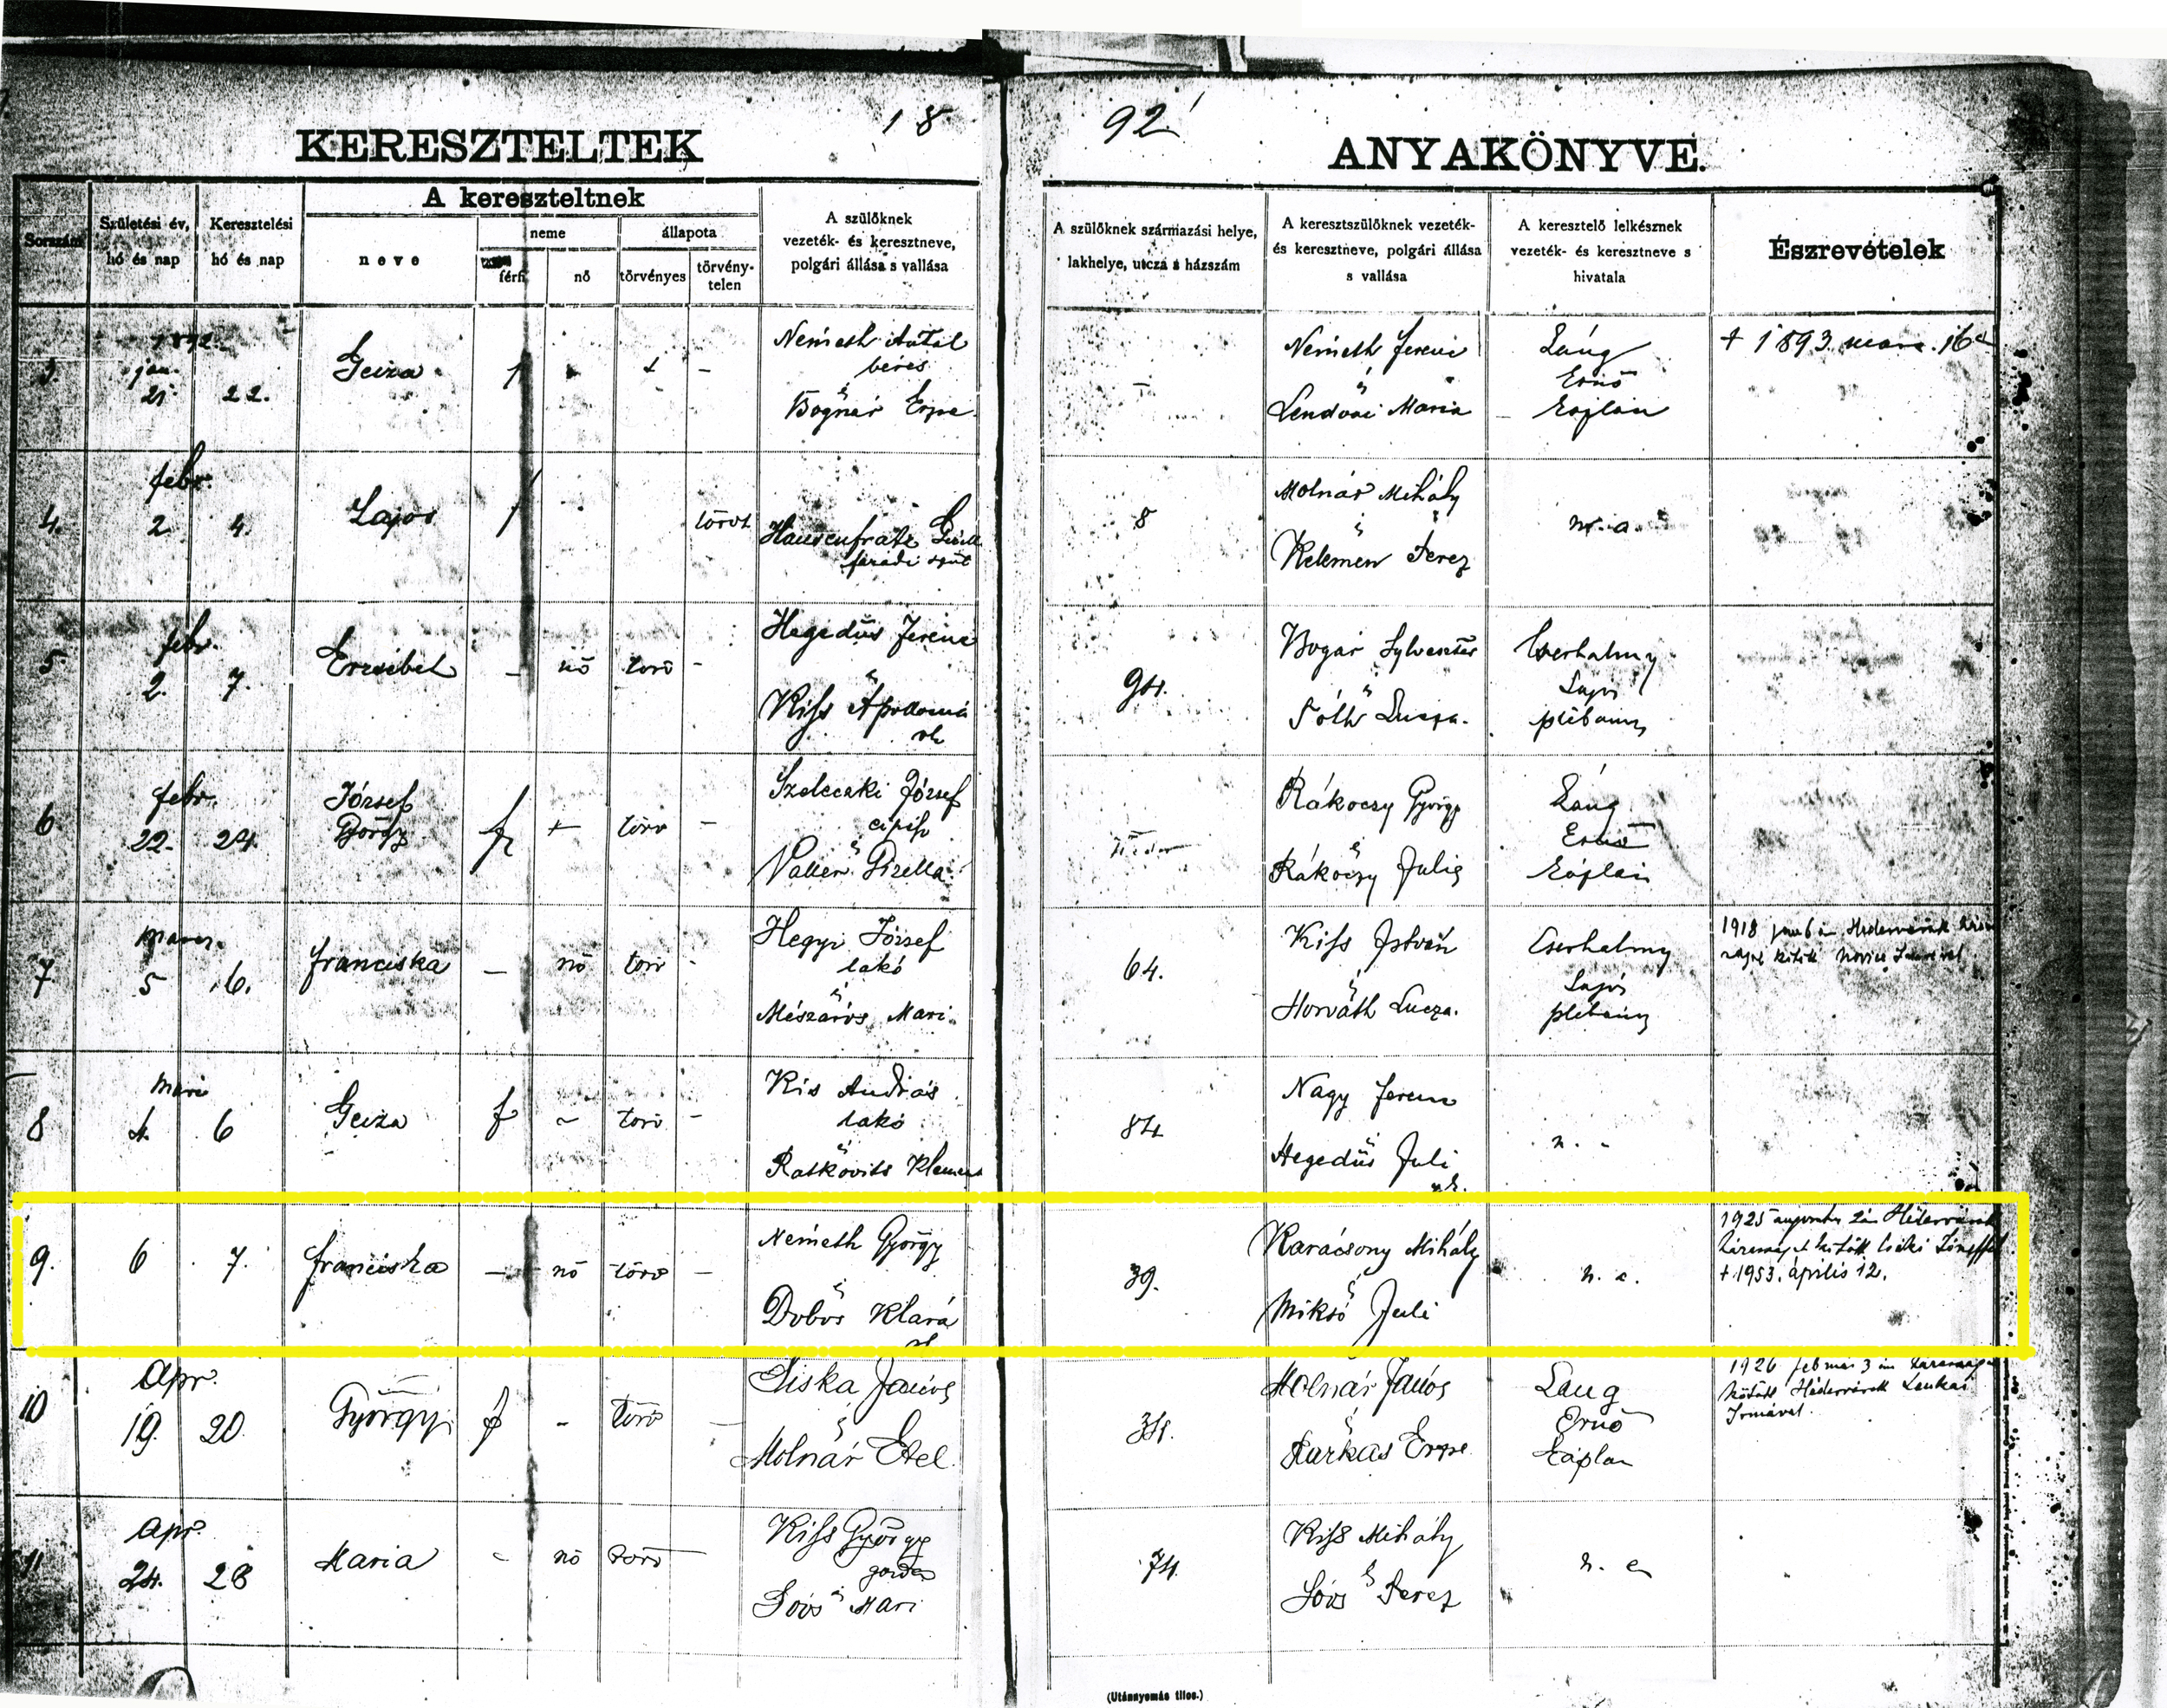 18
92
KERESZTELTEK
ANYAKÖNYVE.
Sorszám
Születési év, hó és nap
Keresztelési hó és nap
A kereszteltnek
neve
neme
férfi
nő
állapota
törvényes
törvény-telen
A szülőknek vezeték- és keresztneve, polgári állása s vallása
A szülőknek származási helye, lakhelye, utcza s házszám
A keresztszülőknek vezeték- és keresztneve, polgári állása s vallása
A keresztelő lelkésznek vezeték- és keresztneve s hivatala
Észrevételek
3.
1892.
jan.
21
22.
Geiza
Németh Antal
béres
é
Bognár Erzse
Németh Ferencz
é
Lendvai Maria
Láng
Ernő
káplán
+ 1893. márc. 16
4.
febr.
2
4.
Lajos
törvt
8
Molnár Mihály
é
Kelemen Terez
n. a.
5
febr.
2.
7.
Erzsébet
-
nő
törv
-
Hegedüs Ferenc
é
Kiss Apollonia
94.
Bogár Sylveszter
é
Tóth Lucza.
Cserhalmy
Lajos
plébános
6
febr.
22.
24.
József
György
f
törv
-
József
é
Gizella
Rákoczy György
é
Rákóczy Julis
Láng
Ernő
káplán
7
márcz.
5
6.
Franciska
-
nő
törv
-
Hegyi József
lakó
é
Mészáros Mari.
64.
Kiss István
é
Horváth Lucza.
Cserhalmy
Lajos
plébános
1918
8
Márc
4.
6
Geiza
f
törv
-
Kis András
lakó
é
Ratkovits
84
Nagy Ferenc
é
Hegedüs Juli
9.
6
7.
Franciska
-
nő
törv
-
Németh György
é
Dobos Klára
39.
Karácsony Mihály
é
Miksó Juli
n. a.
1925 augusztus 2án Hédervárott
házasságot kötött Csiki Józseffel
+ 1953. április 12.
10
Apr.
19.
20.
György
f
-
törv
Siska János
é
Molnár Etel.
34.
Molnár János
é
Farkas Erzse
Lang
Ernő
káplan
1926 február 3 án házasságot
kötött Hédervárott
Irmával.
11
Apr.
24.
28
Maria
-
nő
törv
Kiss György
é
Soós Mari
74.
Kiss Mihály
é
Soós Terez
n. a
(Utánnyomás tilos.)